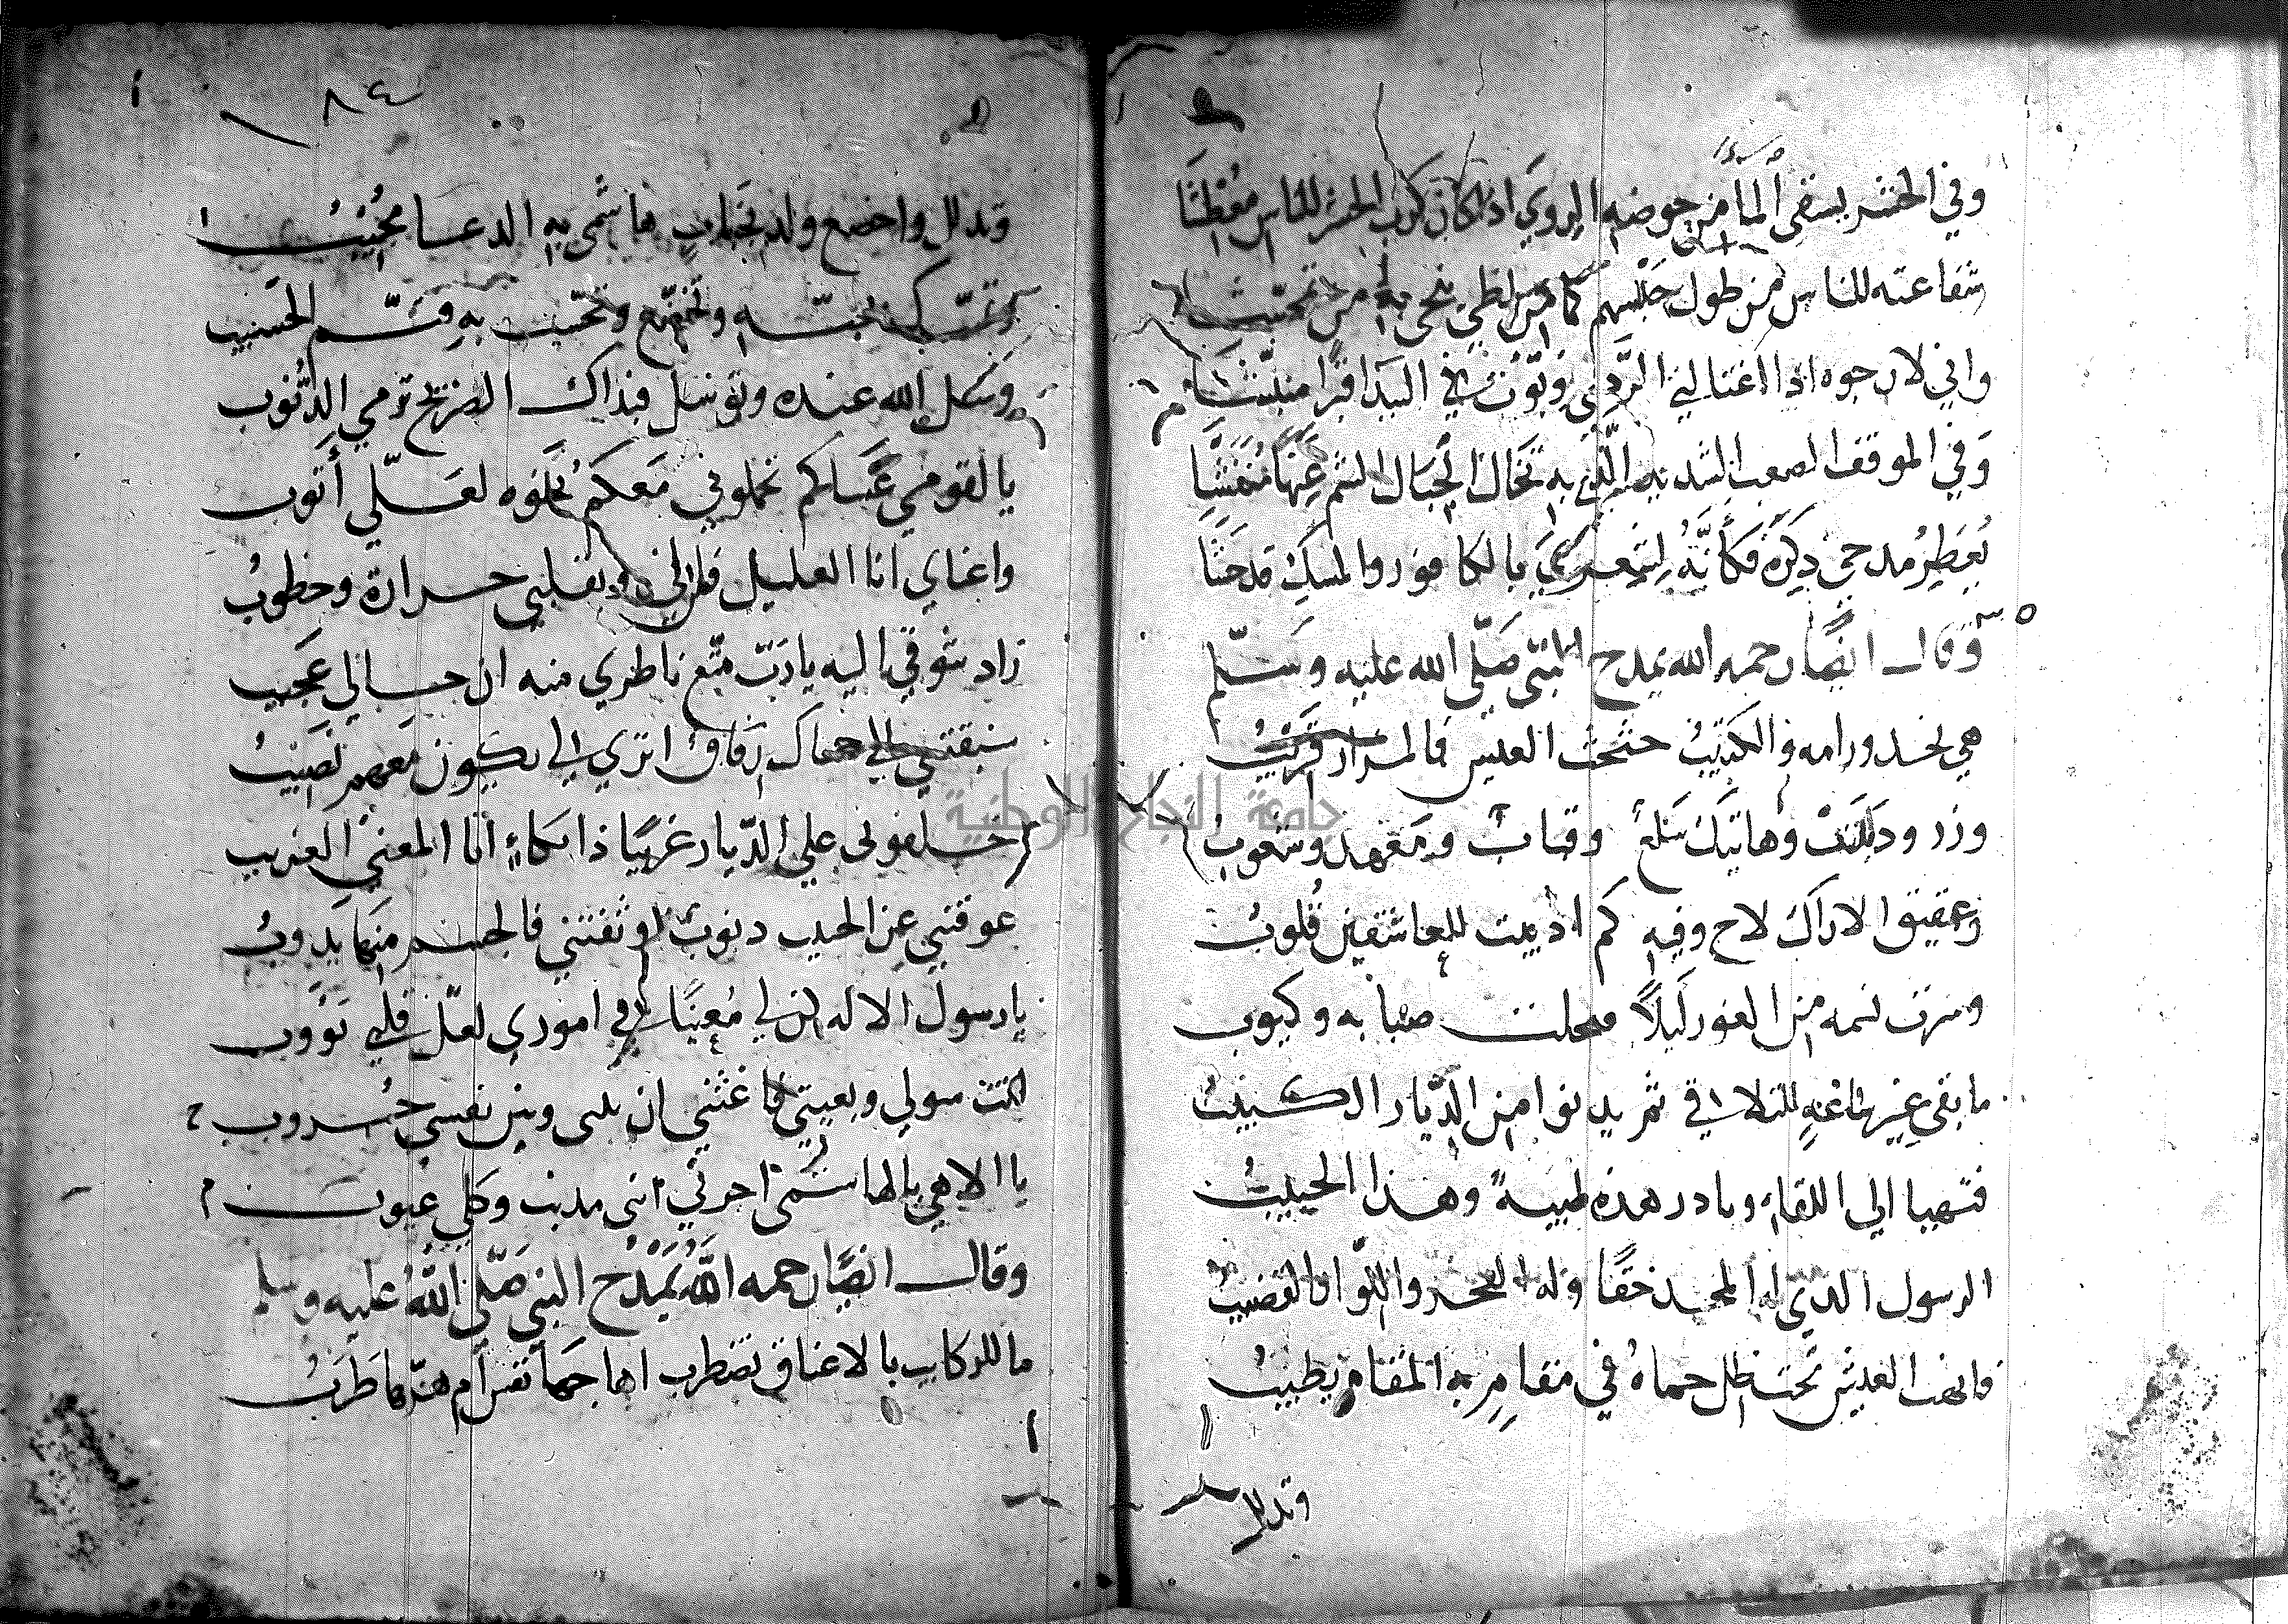 وفي الحشر يسقى الما من حوضه الروي اذا كان كرب الحشر للناس معطشا
شفاعته للناس من طول حبسهم كما من لظى ينجى به من
واني لارجوه اذا اغتالني الردى في البيدا قبرا
وفي الموقف الصعب الشديد الذي به تخال الجبال الشم عهنا منفشا
يعطر مدحي ذكره فكأنه لشعري بالكافور والمسك قد حشا
وقال ايضا رحمه الله يمدح النبي صلى الله عليه وسلم
هي نجد ورامه والكثيب حثحث العيس فالمزار قريب
وزرود بدت وهاتيك سلع وقباب ومعهد وشعوب
وعقيق الاراك لاح وفيه كم اذيبت للعاشقين قلوب
وسرت نسمه من الغور ليلا صبابه وكروب
ما بقى غير ساعة للتلاقي ثم يدنو من الديار الكئيب
فتهيا الي اللقاء وبادر هذه طيبة وهذا الحبيب
الرسول الذي له المجد حقا وله الفخر واللوا والقضيب
فانهض العيش تحت ظل حماه في مقام به المقام يطيب
وتدلل
٨٤
وتدلل واخضع ولد بجناب هاشمي به الدعا مجيب
وتمسك بحبه وتخضع وتحسب به فثم الحسيب
وسل الله عنده وتوسل فبذاك الضريح ترمي الذنوب
يا لقومي عساكم تحملوني معكم نحوه لعلي أتوب
واعناي انا العليل وبقلبي حرارة وخطوب
زاد شوقي اليه يارب متع ناظري منه ان حالي عجيب
سبقتني الي حماك رفاق اترى لي يكون معهم نصيب
خلفوني علي الديار غريبا ذا بكاء انا المعنى الغريب
عوقتني عن الحبيب ذنوب اوثقتني فالجسم منها يذوب
يا رسول الاله كن لي معينا في اموري لعل قلبي يؤوب
انت سولي وبغيتي فاغثني ان بيني وبين نفسي حروب
يا الاهي بالهاشمي اجرني انني مذنب وكلي عيوب
وقال ايضا رحمه الله يمدح النبي صلى الله عليه وسلم
ما للركايب بالاعناق تضطرب اهاجها نفس ام هزها طرب
جامعة النجاح الوطنية